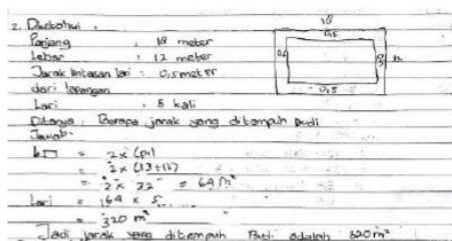 2. Diketahui :
Panjang : 18 meter
Lebar : 12 meter
Jarak lintasan lari : 0,5 meter
dari lapangan
Lari : 5 kali
Ditanya : Berapa jarak yang ditempuh Budi
Jawab :
k = 2 x (p+l)
= 2 x (13+12)
= 2 x 32 = 64 m²
Lari = 64 x 5
= 320 m²
Jadi jarak yang ditempuh Budi adalah 320 m²
18
0,5
12
0,5